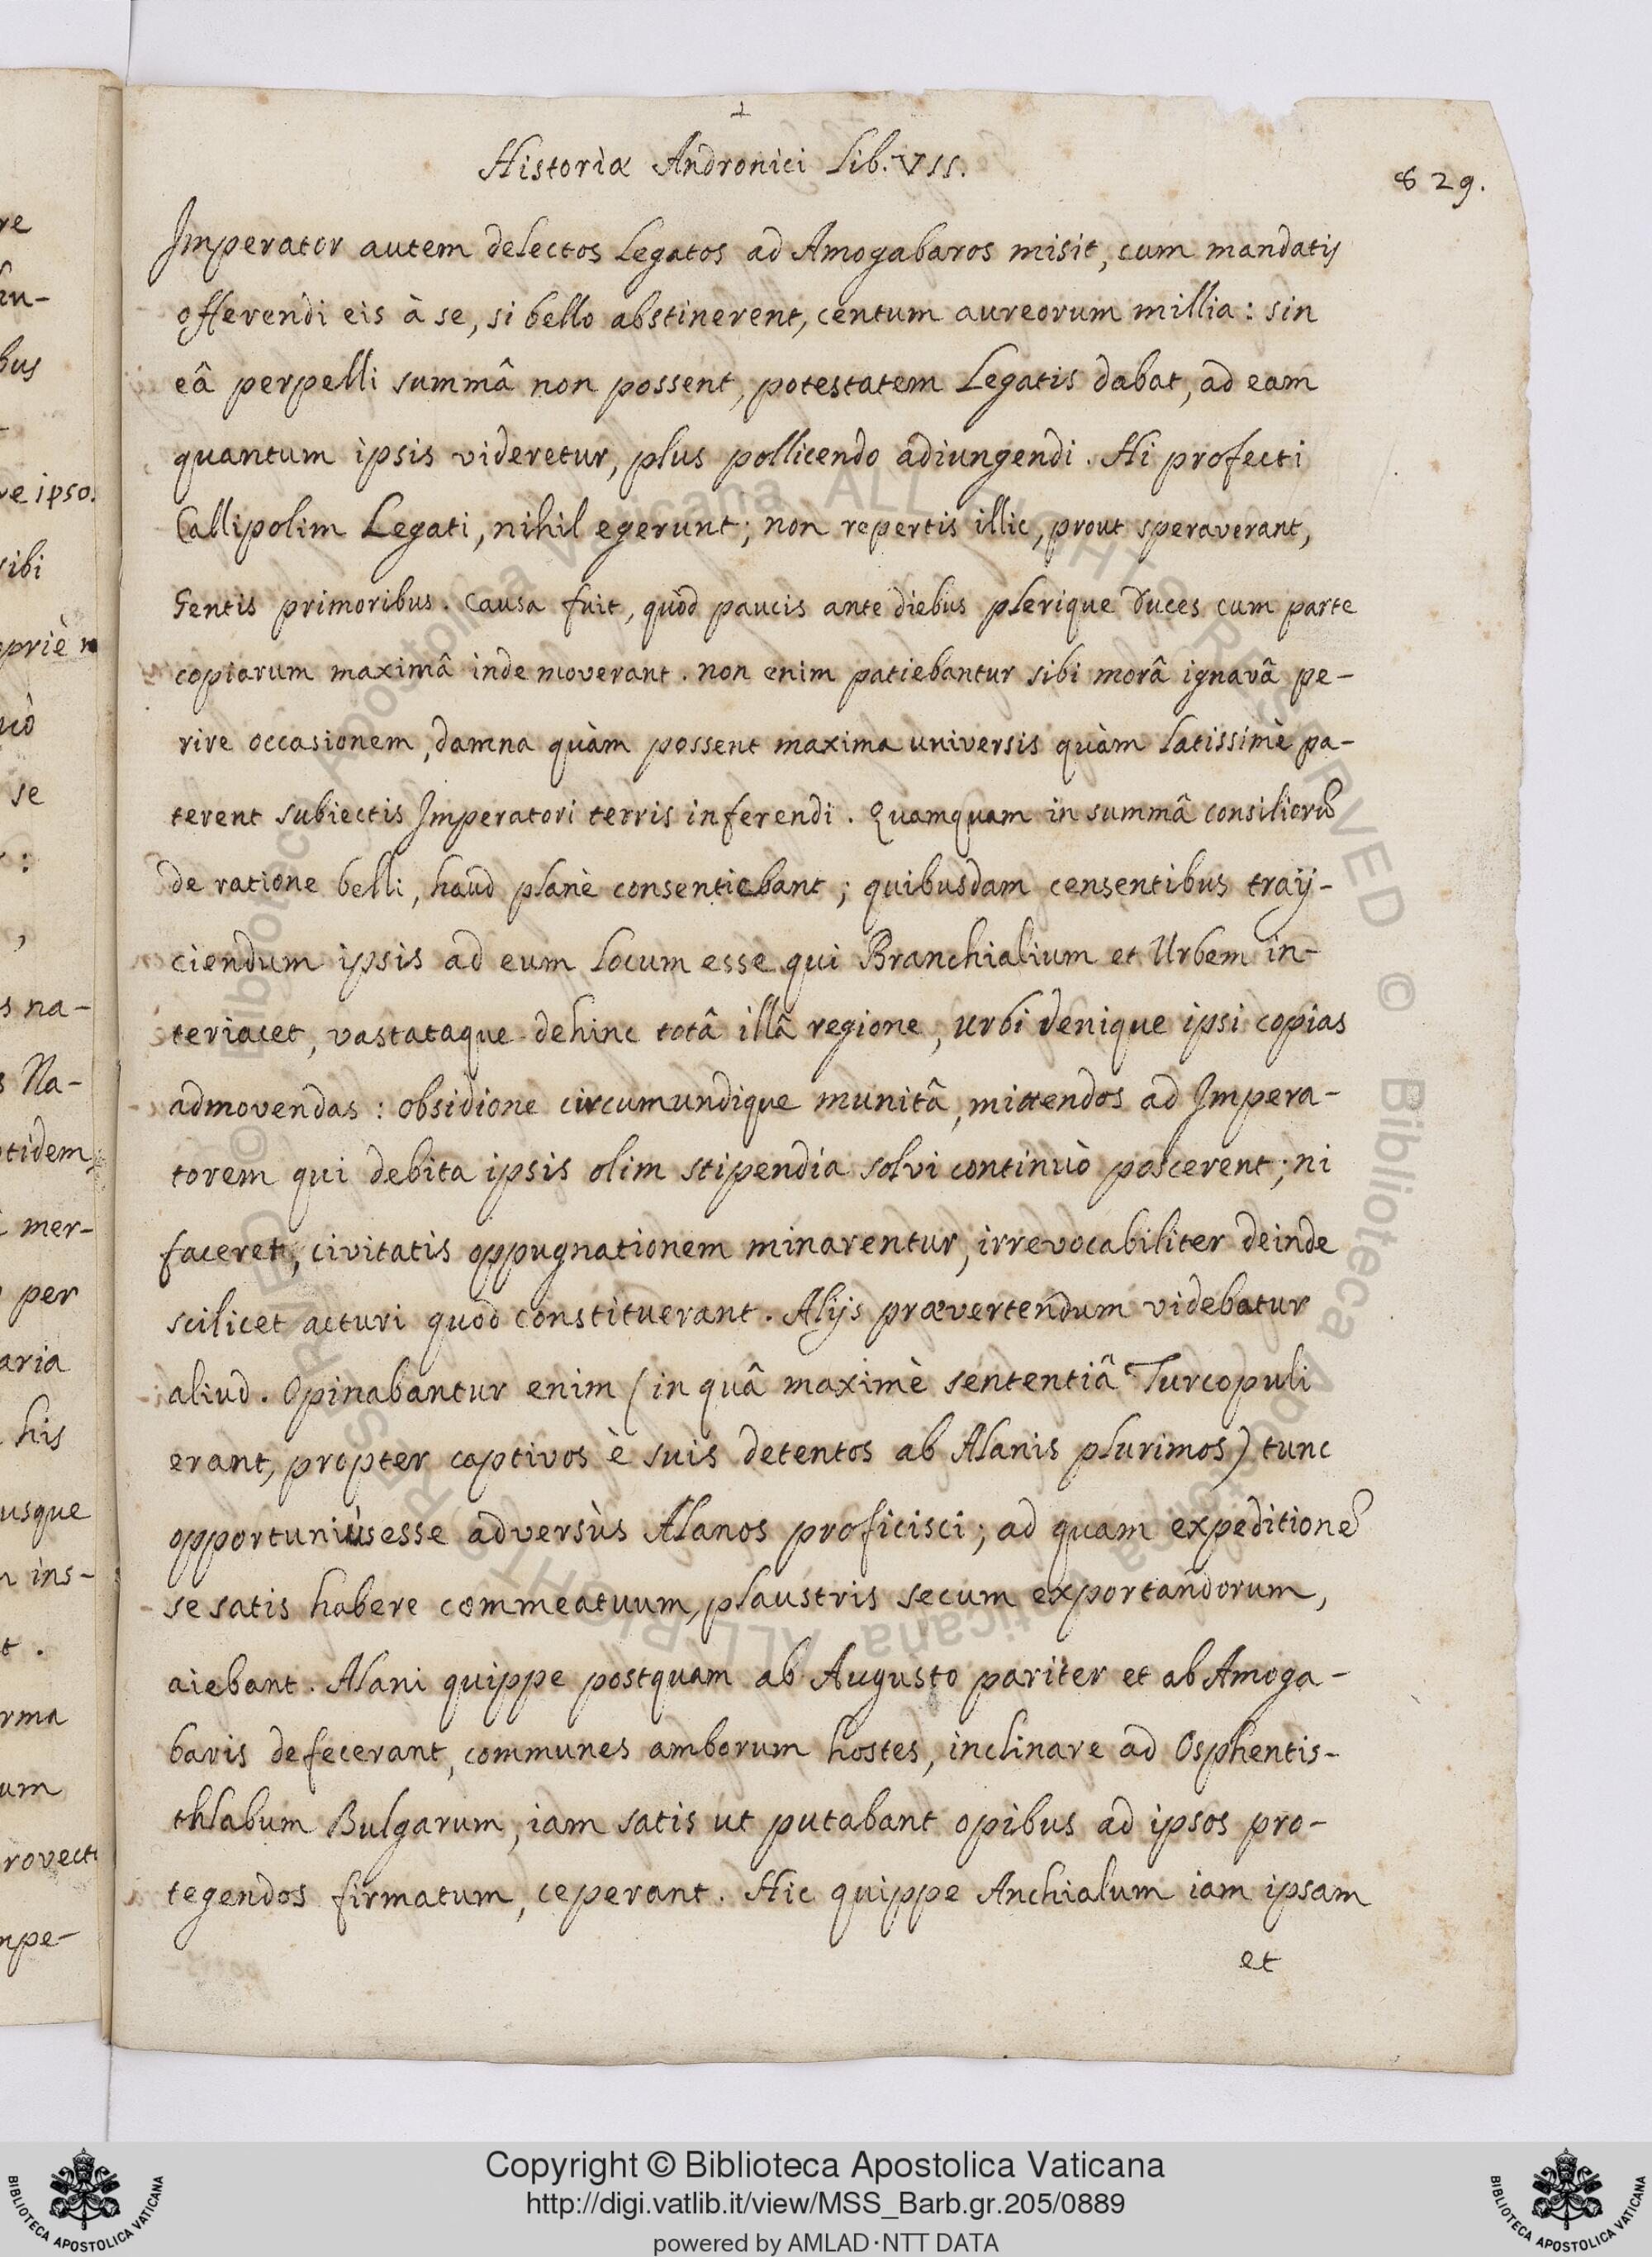 Historiæ Andronici Lib. VII.
829.
Imperator autem delectos Legatos ad Amogabaros misit, cum mandatis
offerendi eis à se, si bello abstinerent, centum aureorum millia: sin
eâ perpelli summâ non possent, potestatem Legatis dabat, ad eam
quantum ipsis videretur, plus pollicendo adiungendi. Hi profecti
Callipolim Legati, nihil egerunt; non repertis illic, prout speraverant,
Gentis primoribus. Causa fuit, quòd paucis ante diebus plerique Duces cum parte
copiarum maximâ inde moverant. non enim patiebantur sibi morâ ignavâ pe-
rire occasionem, damna quàm possent maxima universis quàm latissimè pa-
terent subiectis Imperatori terris inferendi. Quamquam in summâ consiliorũ
de ratione belli, haud planè consentiebant; quibusdam censentibus traij-
ciendum ipsis ad eum Locum esse qui Branchialium et Urbem in-
teriacet, vastataque dehinc totâ illâ regione, Urbi denique ipsi copias
admovendas: obsidione circumundique munitâ, mittendos ad Impera-
torem qui debita ipsis olim stipendia solvi continuò poscerent; ni
faceret, civitatis oppugnationem minarentur, irrevocabiliter deinde
scilicet acturi quod constituerant. Alijs prævertendum videbatur
aliud. Opinabantur enim (in quâ maximè sententiâ Turcopuli
erant, propter captivos è suis detentos ab Alanis plurimos) tunc
opportuniùs esse adversùs Alanos proficisci; ad quam expeditionẽ
se satis habere commeatuum, plaustris secum exportandorum,
aiebant. Alani quippe postquam ab Augusto pariter et ab Amoga-
baris defecerant, communes amborum hostes, inclinare ad Osphentis-
thlabum Bulgarum, iam satis ut putabant opibus ad ipsos pro-
tegendos firmatum, ceperant. Hic quippe Anchialum iam ipsam
et
re
bus
ve ipso.
sibi
se
s na-
s Na-
tidem
mer-
per
aria
his
usque
ins-
rma
um
mpe-
© Biblioteca Apostolica Vaticana ALL RIGHTS RESERVED © Biblioteca Apostolica Vaticana ALL RIGHTS RESERVED
Copyright © Biblioteca Apostolica Vaticana
http://digi.vatlib.it/view/MSS_Barb.gr.205/0889
powered by AMLAD·NTT DATA
BIBLIOTECA APOSTOLICA VATICANA
BIBLIOTECA APOSTOLICA VATICANA